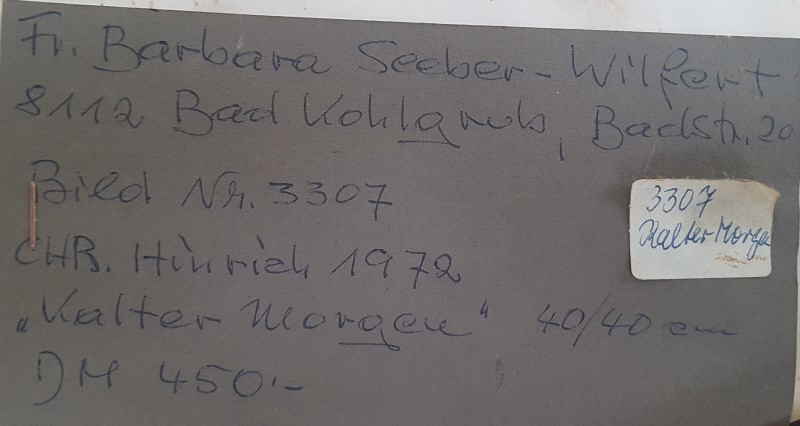 Fr. Barbara Seeber-Wilfert
8112 Bad Kohlgrub, Badstr. 20
Bild Nr. 3307
CHR. Hinrich 1972
„Kalter Morgen“ 40/40 cm
DM 450.-
3307
Kalter Morgen